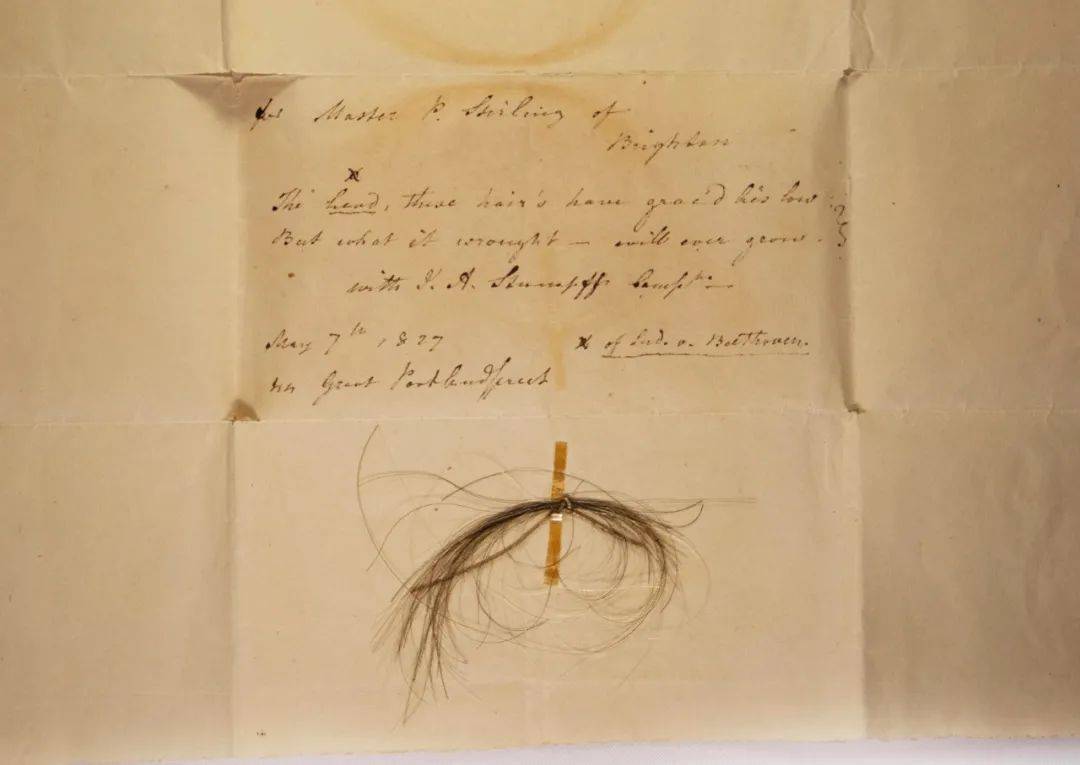 for Master P. Stirling of
Brighton
x
The head, these hair's have grac'd lies low
But what it wrought – will ever grow.
with J. A. Stumpff's Compts
May 7th 1827
x of Lud. v. Beethoven.
Great Portlandstreet